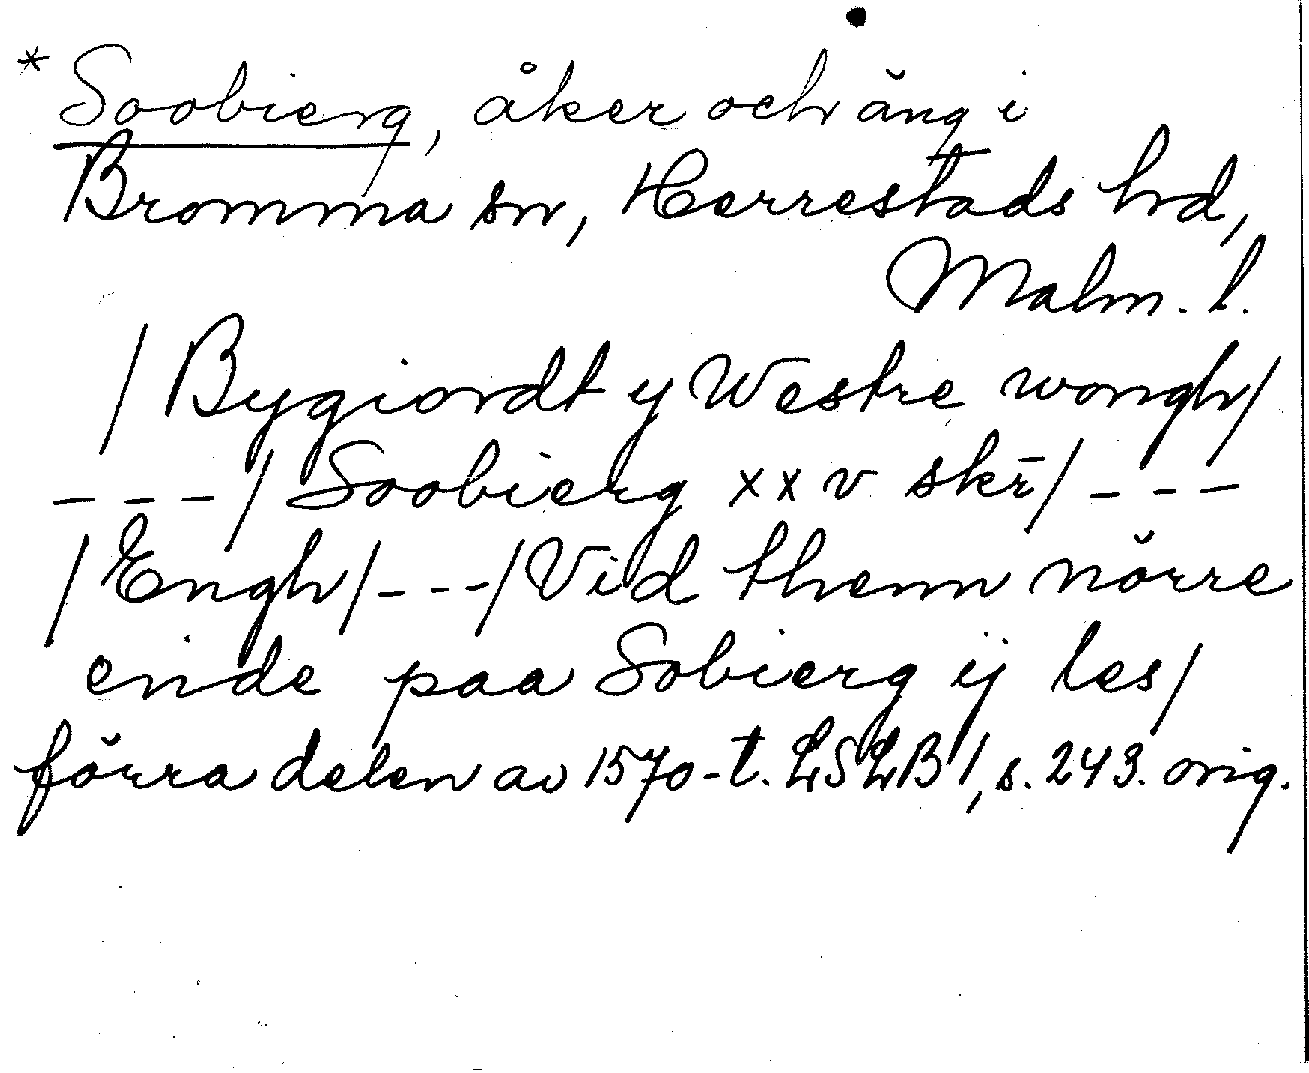 * Soobierg, åker och äng i
Bromma sn, Herrestads hd,
Malm. l.
/ Bygiordt y Westre wongh/
- - - / Soobierg xxv skr̄ / - - -
/ Engh / - - - / Vid thenn nörre
einde paa Sobierg ij les /
förra delen av 1570-t. LSLB 1, s. 243. orig.